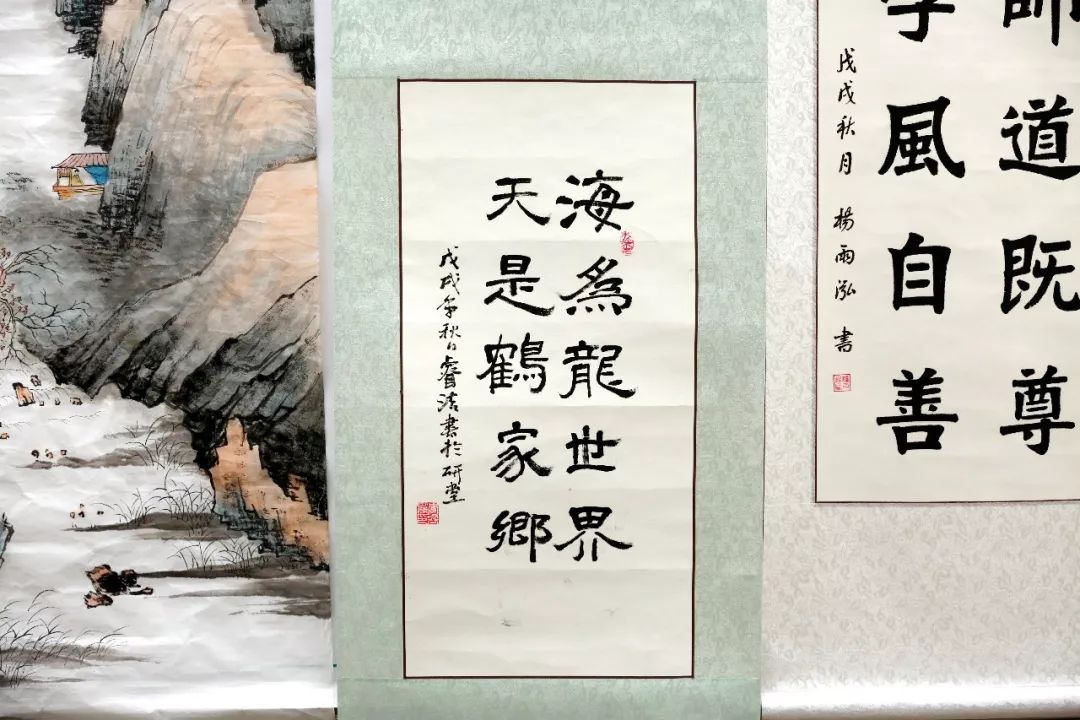 師道既尊
風自善
戊戌秋月 楊雨泓 書
海為龍世界
天是鶴家鄉
戊戌年秋日睿洁書於研堂